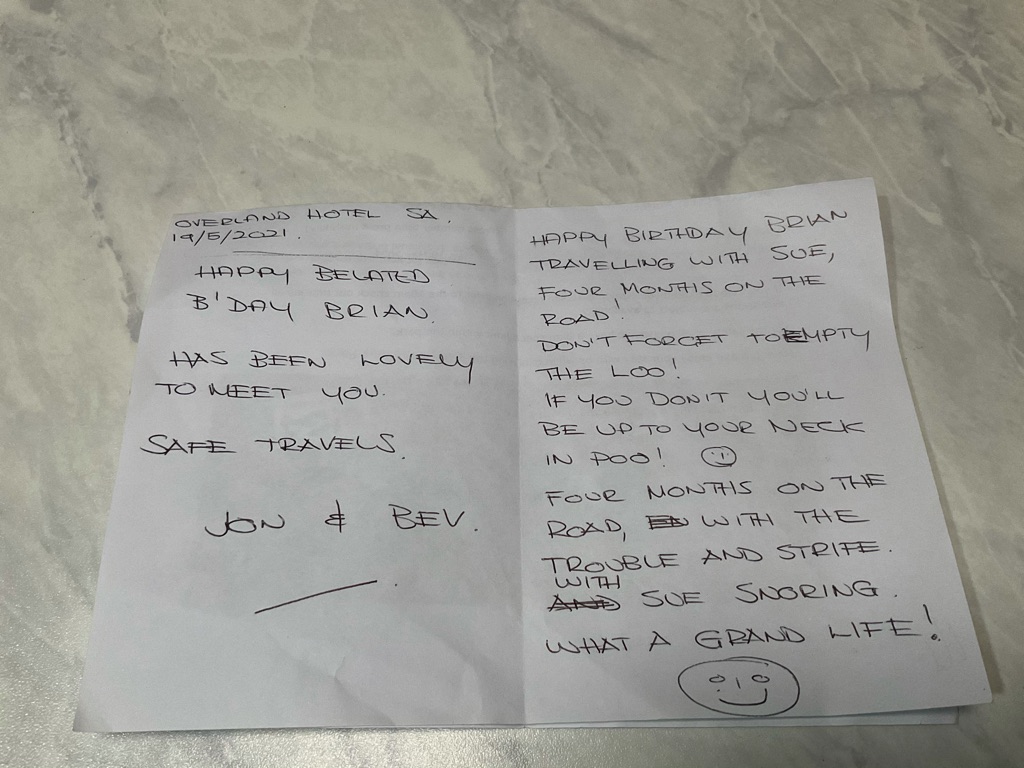 OVERLAND HOTEL SA.
19/5/2021.
HAPPY BELATED
B'DAY BRIAN.
HAS BEEN LOVELY
TO MEET YOU.
SAFE TRAVELS.
JON & BEV.
HAPPY BIRTHDAY BRIAN
TRAVELLING WITH SUE,
FOUR MONTHS ON THE
ROAD!
DON'T FORGET TO EMPTY
THE LOO!
IF YOU DON'T YOU'LL
BE UP TO YOUR NECK
IN POO!
FOUR MONTHS ON THE
ROAD, WITH THE
TROUBLE AND STRIFE.
WITH
AND SUE SNORING.
WHAT A GRAND LIFE!